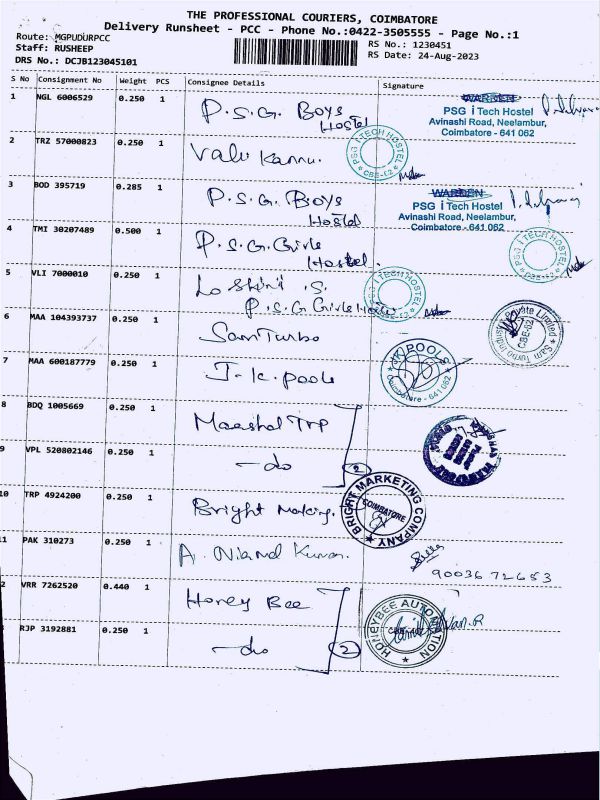 THE PROFESSIONAL COURIERS, COIMBATORE
Delivery Runsheet - PCC - Phone No.:0422-3505555 - Page No.:1
Route: MGPUDURPCC
Staff: RUSHEEP
DRS No.: DCJB123045101
RS No.: 1230451
RS Date: 24-Aug-2023
S No Consignment No Weight PCS Consignee Details Signature
1 NGL 6006529 0.250 1 P.S.G. Boys Hostel
WARDEN
PSG iTech Hostel
Avinashi Road, Neelambur,
Coimbatore - 641 062
2 TRZ 57000823 0.250 1 Valu Kannu.
PSG iTECH HOSTEL
CBE-62
3 BOD 395719 0.285 1 P.S.G. Boys Hostel
WARDEN
PSG iTech Hostel
Avinashi Road, Neelambur,
Coimbatore - 641 062
4 TMI 30207489 0.500 1 P.S.G. Girls Hostel.
iTECH HOSTEL
5 VLI 7000010 0.250 1 Lo Shini .S.
P.S.G Girls Hostel
iTECH HOSTEL
6 MAA 104393737 0.250 1 Sam Turbo
Private Limited ★ Sam Turbo Industry
CBE-62
7 MAA 600187779 0.250 1 J.K. Pools
JK POOLS
Coimbatore - 641 062
8 BDQ 1005669 0.250 1 Maashal TRP
9 VPL 520802146 0.250 1 -do
2
10 TRP 4924200 0.250 1 Bright Making.
BRIGHT MARKETING COMPANY ★
COIMBATORE
11 PAK 310273 0.250 1 A. Nirmal Kumar.
90036 72653
2 VRR 7262520 0.440 1 Honey Bee
HONEYBEE AUTOMATION ★
RJP 3192881 0.250 1 -do
2